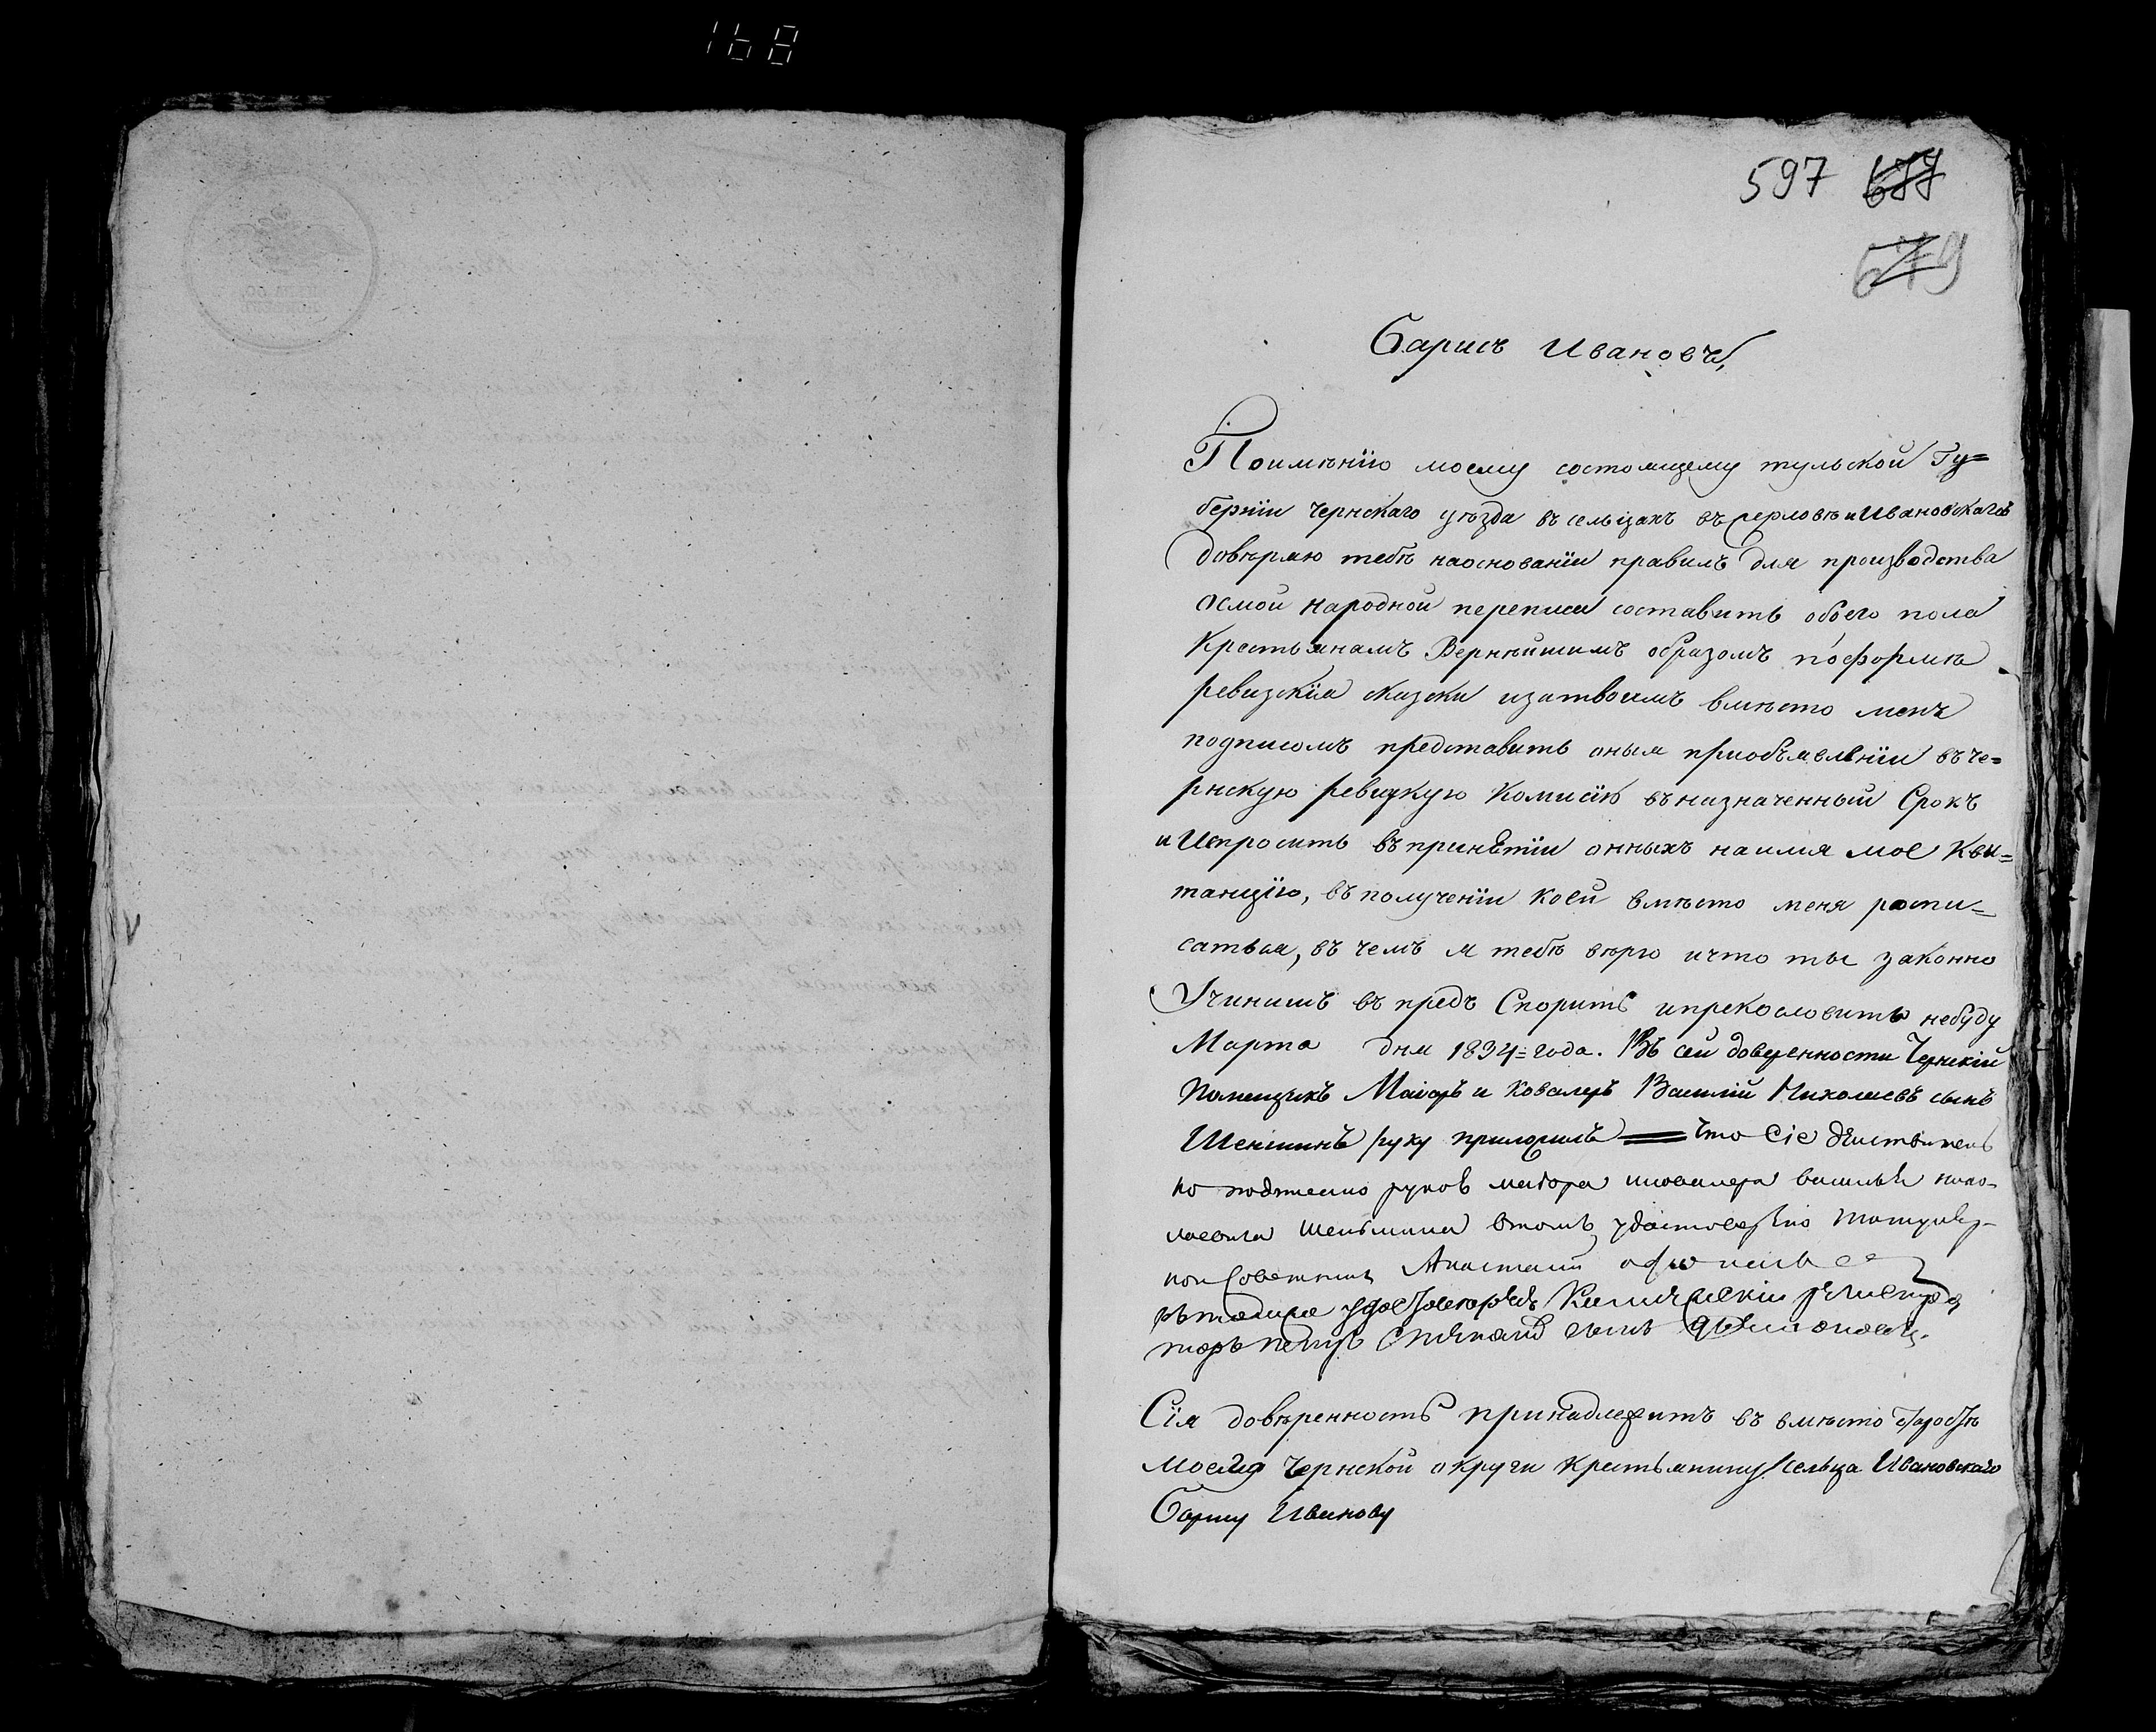 168
597 677
679
Барисъ Ивановъ,
Поимѣнїю моему состоящему тульской Гу=
бернїи Чернскаго уѣзда въ сельцахъ въ и Ивановскаго
довѣряю тебѣ наоснованїи правилъ для производства
осмой народной переписи составить обоего пола
Крестьянамъ Вернѣйшимъ образомъ поформѣ
ревизскїя сказки изатвоимъ вмѣсто меня
подписомъ представить оныя приобъявленїи въ че=
рнскую ревизкую Комисїю въназначенный Срокъ
и Испросить въпринѣтїи онныхъ наимя мое Кви=
танцїю, въ полученїи коей вмѣсто меня роспи=
саться, въ чемъ я тебѣ вѣрю ичто ты законно
Учинишъ въ предь Спорить ипрекословить небуду
Марта дня 1834= года. Въ сей доверенности Чернскій
Помещикъ Маіоръ и Ковалеръ Василій Николаевъ сынъ
Шеншинъ руку приложилъ Что Сіе действитель
но рукою маіора икавалера василья нико-
лаевича шеньшина втомъ удостоверяю титуляр-
ной Советник Анастасий
Сїя довѣренность принадлежитъ въ вмѣсто старостѣ
моему Чернской округи крестьянину Сельца Ивановскаго
Барису Иванову